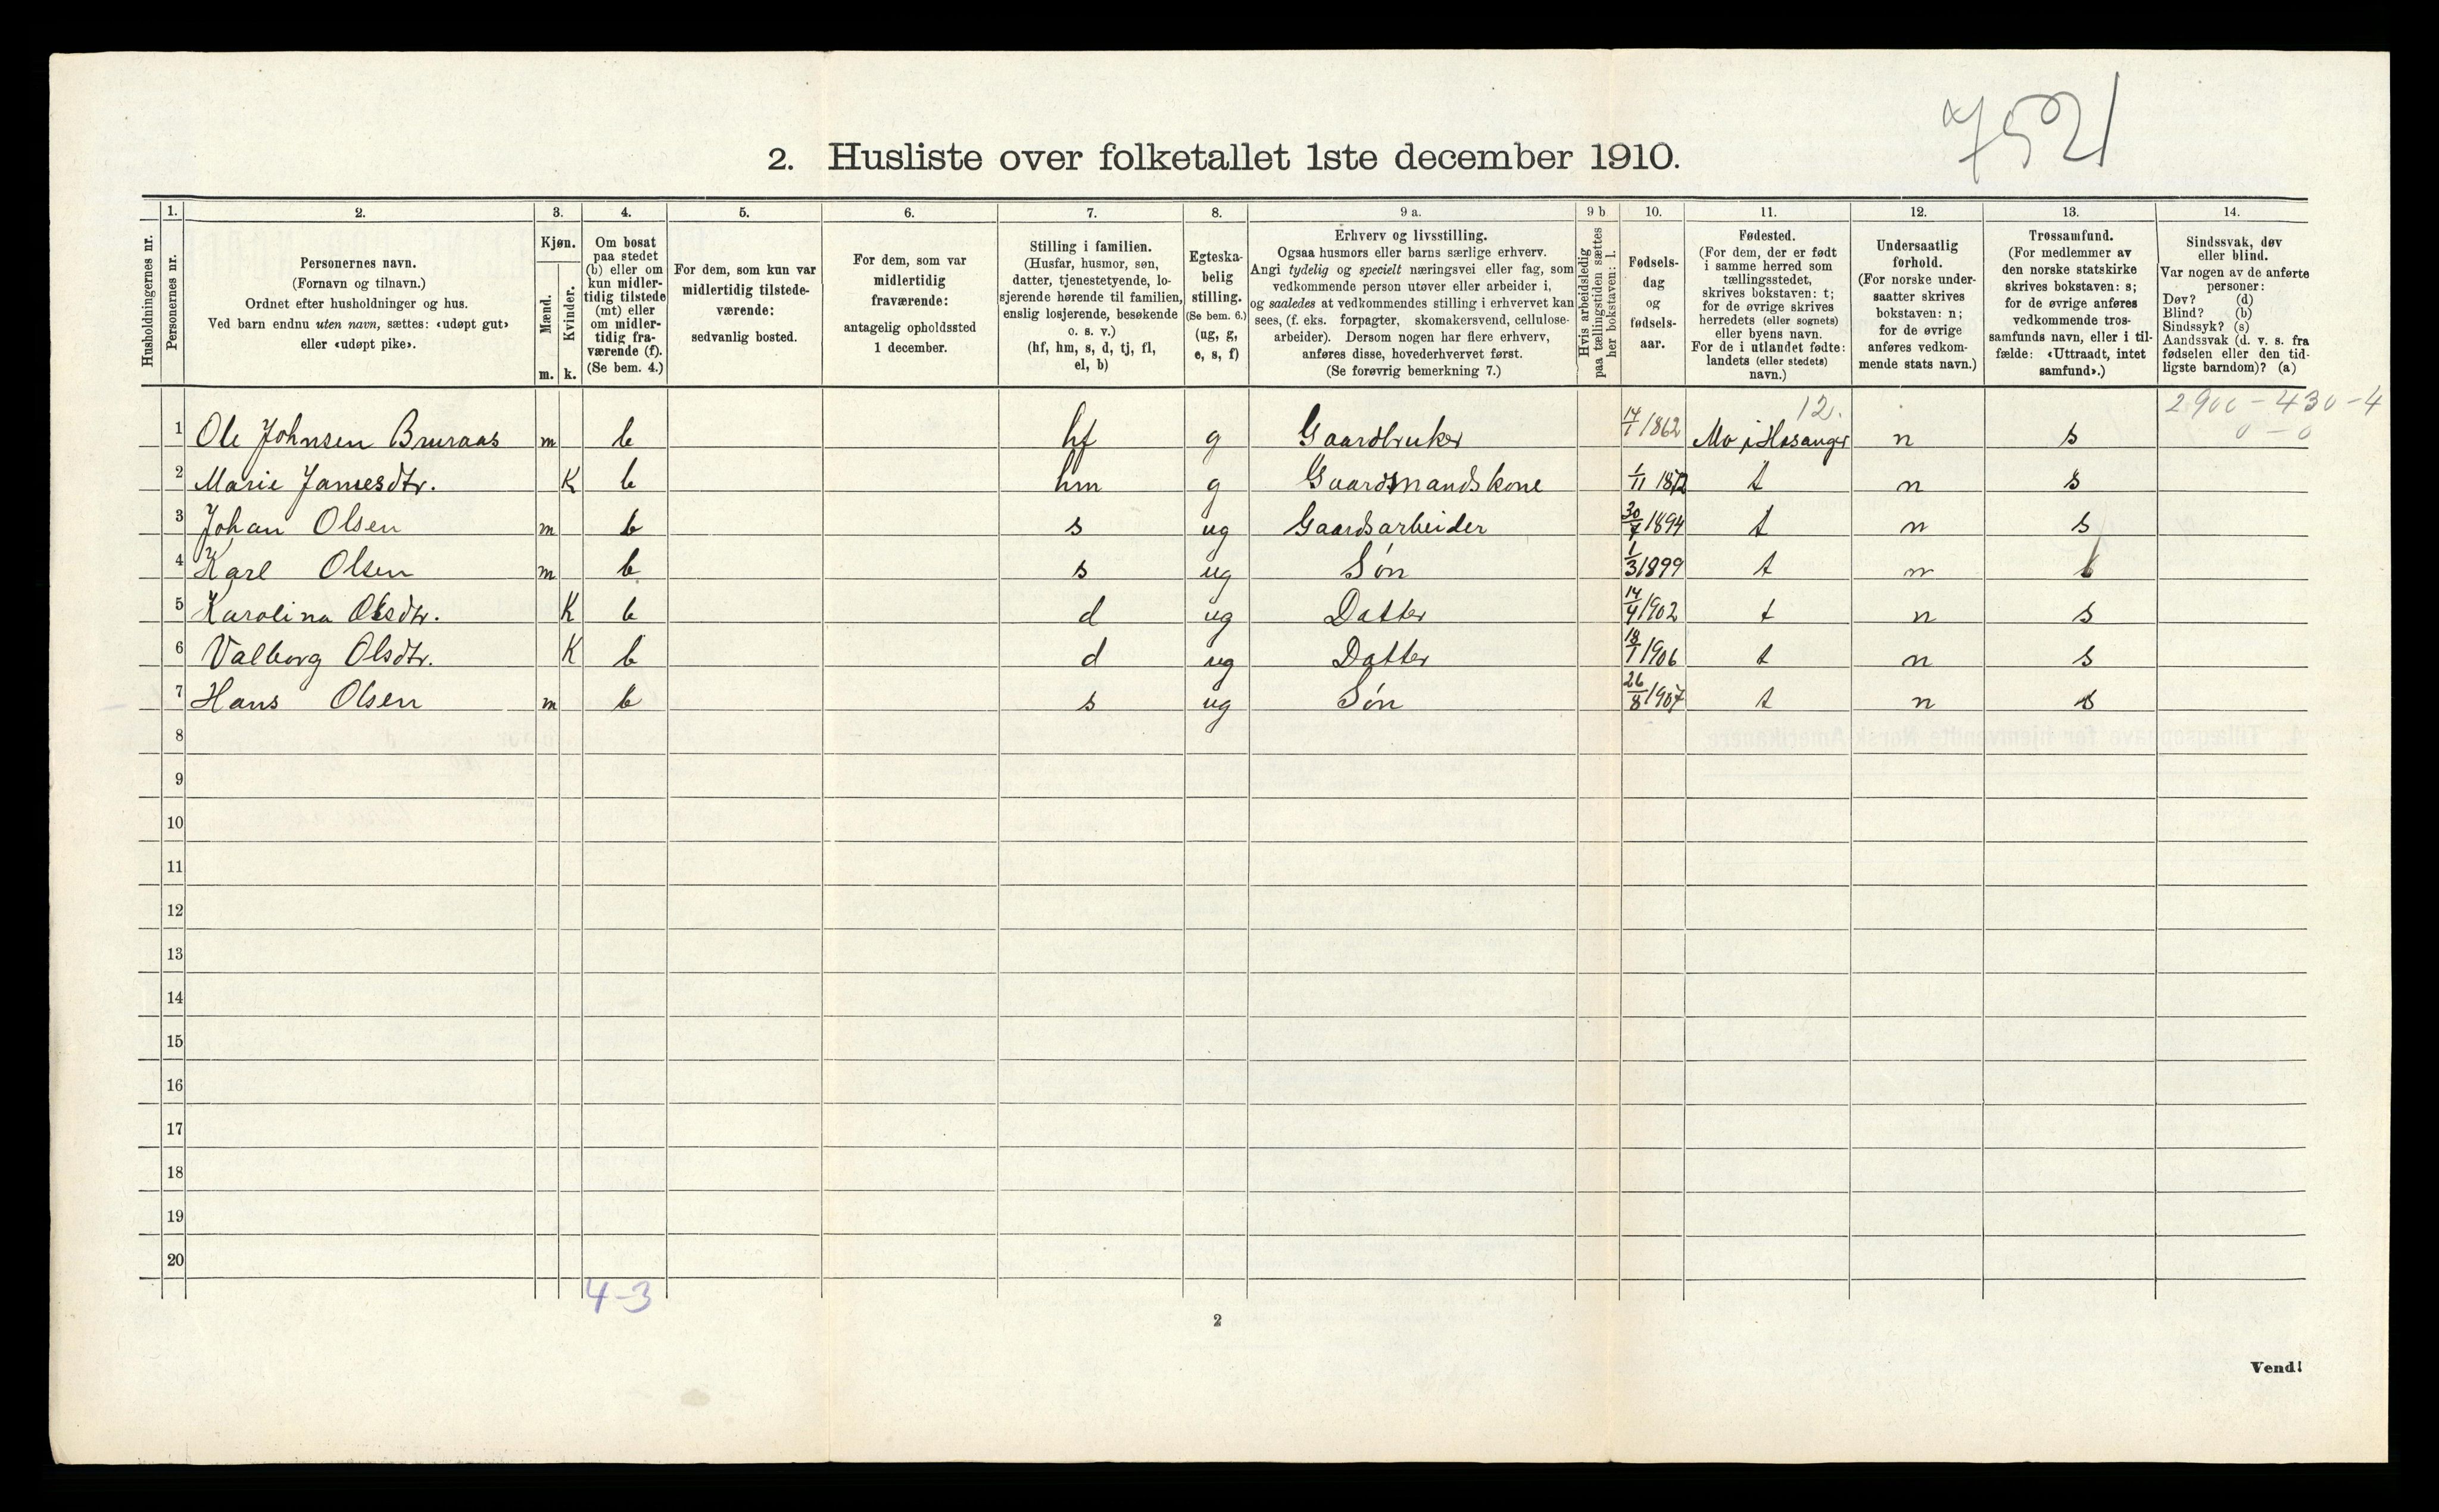 7521
2. Husliste over folketallet 1ste december 1910.
Husholdningernes nr.
1.
Personernes nr.
2.
Personernes navn.
(Fornavn og tilnavn.)
Ordnet efter husholdninger og hus.
Ved barn endnu uten navn, sættes: «udøpt gut»
eller «udøpt pike».
3.
Kjøn.
Mænd.
Kvinder.
m. k.
4.
Om bosat
paa stedet
(b) eller om
kun midler-
tidig tilstede
(mt) eller
om midler-
tidig fra-
værende (f).
(Se bem. 4.)
5.
For dem, som kun var
midlertidig tilstede-
værende:
sedvanlig bosted.
6.
For dem, som var
midlertidig
fraværende:
antagelig opholdssted
1 december.
7.
Stilling i familien.
(Husfar, husmor, søn,
datter, tjenestetyende, lo-
sjerende hørende til familien,
enslig losjerende, besøkende
o. s. v.)
(hf, hm, s, d, tj, fl,
el, b)
8.
Egteska-
belig
stilling.
(Se bem. 6.)
(ug, g,
e, s, f)
9 a.
Erhverv og livsstilling.
Ogsaa husmors eller barns særlige erhverv.
Angi tydelig og specielt næringsvei eller fag, som
vedkommende person utøver eller arbeider i,
og saaledes at vedkommendes stilling i erhvervet kan
sees, (f. eks. forpagter, skomakersvend, cellulose-
arbeider). Dersom nogen har flere erhverv,
anføres disse, hovederhvervet først.
(Se forøvrig bemerkning 7.)
9 b
Hvis arbeidsledig
paa tællingstiden sættes
her bokstaven: l.
10.
Fødsels-
dag
og
fødsels-
aar.
11.
Fødested.
(For dem, der er født
i samme herred som
tællingsstedet,
skrives bokstaven: t;
for de øvrige skrives
herredets (eller sognets)
eller byens navn.
For de i utlandet fødte:
landets (eller stedets)
navn.)
12.
Undersaatlig
forhold.
(For norske under-
saatter skrives
bokstaven: n;
for de øvrige
anføres vedkom-
mende stats navn.)
13.
Trossamfund.
(For medlemmer av
den norske statskirke
skrives bokstaven: s;
for de øvrige anføres
vedkommende tros-
samfunds navn, eller i til-
fælde: «Uttraadt, intet
samfund».)
14.
Sindssvak, døv
eller blind.
Var nogen av de anførte
personer:
Døv? (d)
Blind? (b)
Sindssyk? (s)
Aandssvak (d. v. s. fra
fødselen eller den tid-
ligste barndom)? (a)
12. 2900-430-4
0-0
1 Ole Johnsen Bruraas m b hf g Gaardbruker 14/1 1862 Mo i Hosanger n s
2 Marie Jamesdtr. K b hm g Gaardmandskone 1/11 1872 t n s
3 Johan Olsen m b s ug Gaardsarbeider 30/7 1894 t n s
4 Karl Olsen m b s ug Søn 1/3 1899 t n
5 Karolina Olsdtr. K b d ug Datter 14/4 1902 t n s
6 Valborg Olsdtr. K b d ug Datter 18/1 1906 t n s
7 Hans Olsen m b s ug Søn 26/8 1907 t n s
8
9
10
11
12
13
14
15
16
17
18
19
20
4-3
2
Vend!